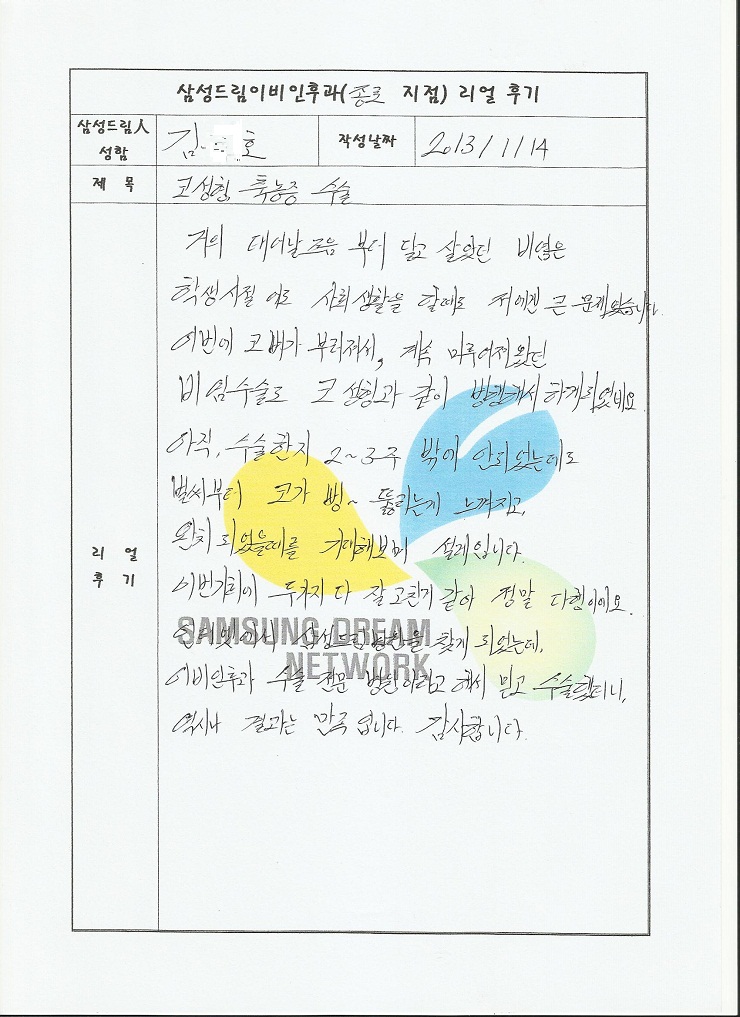 삼성드림이비인후과(종로 지점) 리얼 후기
삼성드림人
성함
김 호
작성날짜
2013/1/14
제 목
코성형, 축농증 수술
리 얼
후 기
거의 태어날즈음 부터 달고 살았던 비염은
학생시절 에도 사회생활을 할때도 저에겐 큰 문제였습니다.
이번에 코뼈가 부러져서, 계속 미루어져왔던
비염수술로 코 성형과 같이 병행해서 하게되었네요
아직, 수술한지 2~3주 밖에 안되었는데도
벌써부터 코가 뻥~ 뚫리는게 느껴지고,
완치 되었을때를 기대해보며 설레입니다.
이번기회에 두가지 다 잘 고친거 같아 정말 다행이에요.
인터넷에서 삼성드림병원을 찾게 되었는데,
이비인후과 수술 전문 병원이라고 해서 믿고 수술했더니,
역시나 결과는 만족 입니다. 감사합니다.
SAMSUNG DREAM
NETWORK